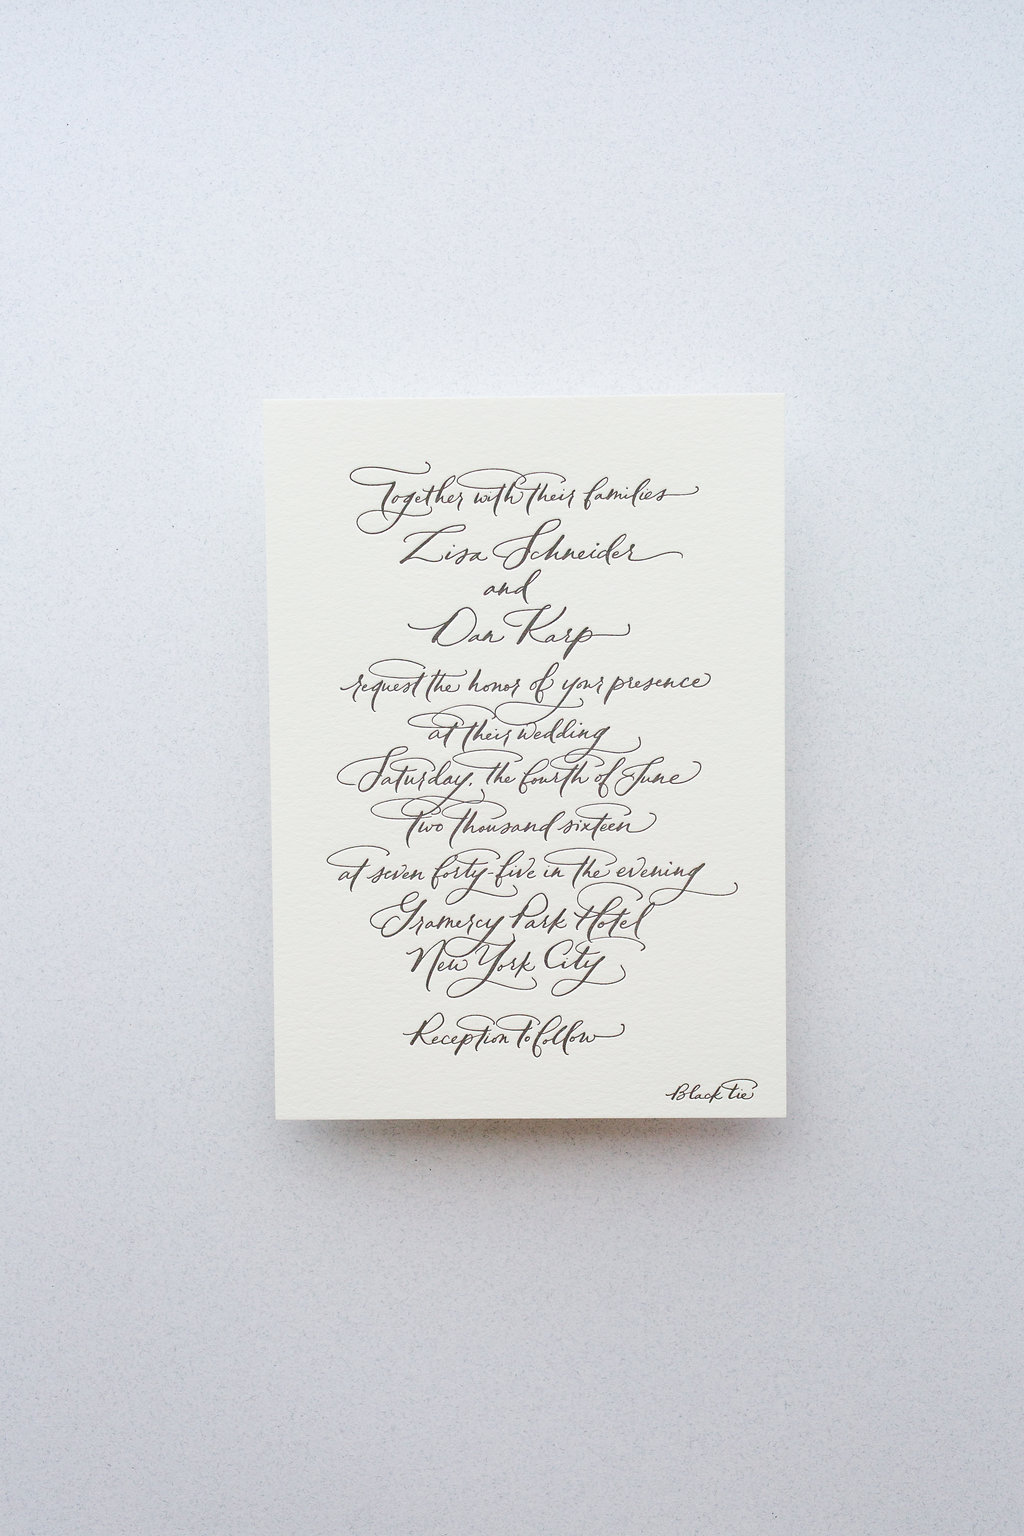 Together with their families
Lisa Schneider
and
Dan Karp
request the honor of your presence
at their wedding
Saturday, the fourth of June
two thousand sixteen
at seven forty-five in the evening
Gramercy Park Hotel
New York City
Reception to follow
Black tie